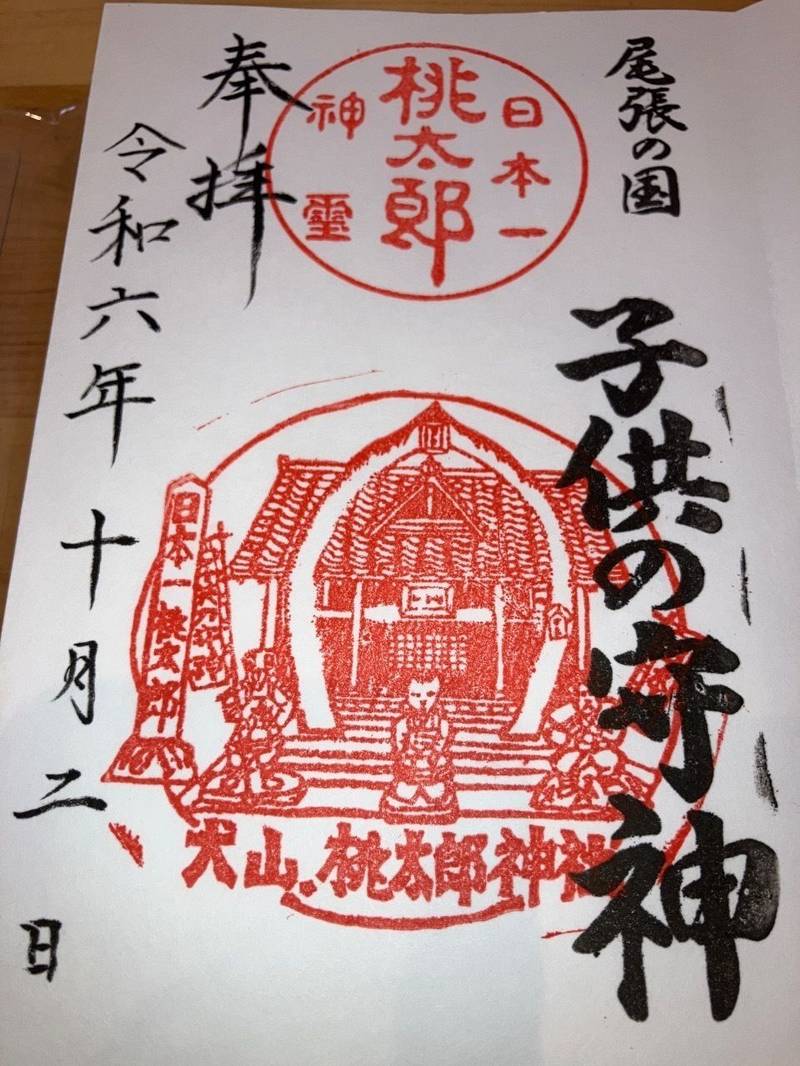 尾張の国
子供の守神
日本一
桃太郎
神霊
奉拝
令和六年十月二日
日本一桃太郎
犬山.桃太郎神社